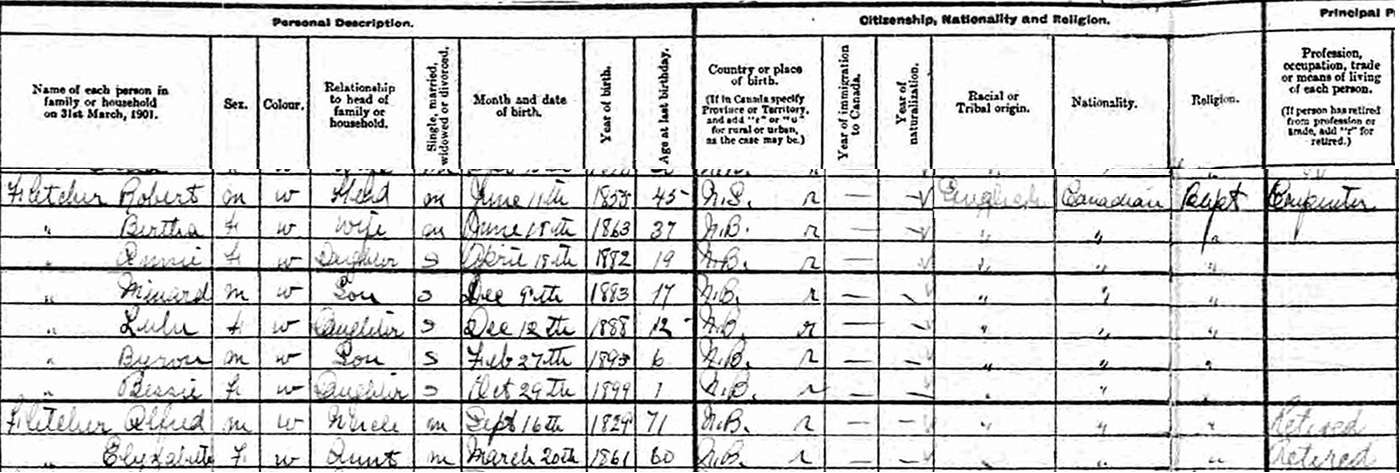 Personal Description. Citizenship, Nationality and Religion. Principal P
Name of each person in family or household on 31st March, 1901. Sex. Colour. Relationship to head of family or household. Single, married, widowed or divorced. Month and date of birth. Year of birth. Age at last birthday. Country or place of birth. (If in Canada specify Province or Territory, and add "r" or "u" for rural or urban, as the case may be.) Year of immigration to Canada. Year of naturalization. Racial or Tribal origin. Nationality. Religion. Profession, occupation, trade or means of living of each person. (If person has retired from profession or trade, add "r" for retired.)
Fletcher Robert m w Head m June 11th 1855 45 N.S. r — — English Canadian Bapt Carpenter
" Bertha F w Wife m June 18th 1863 37 N.B. r — — " " "
" Annie F w Daughter S April 18th 1882 19 N.B. r — — " " "
" Minard m w Son S Dec 9th 1883 17 N.B. r — — " " "
" Lulu F w Daughter S Dec 12th 1888 12 N.B. r — — " " "
" Byron m w Son S Feb 27th 6 N.B. r — — " " "
" Bessie F w Daughter S Oct 29th 1899 1 N.B. r — — " "
Fletcher Alfred m w Uncle m Sept 16th 1829 71 N.B. r — — " " " Retired
" Elizabeth F w Aunt m March 20th 60 N.B. r — — " " " Retired